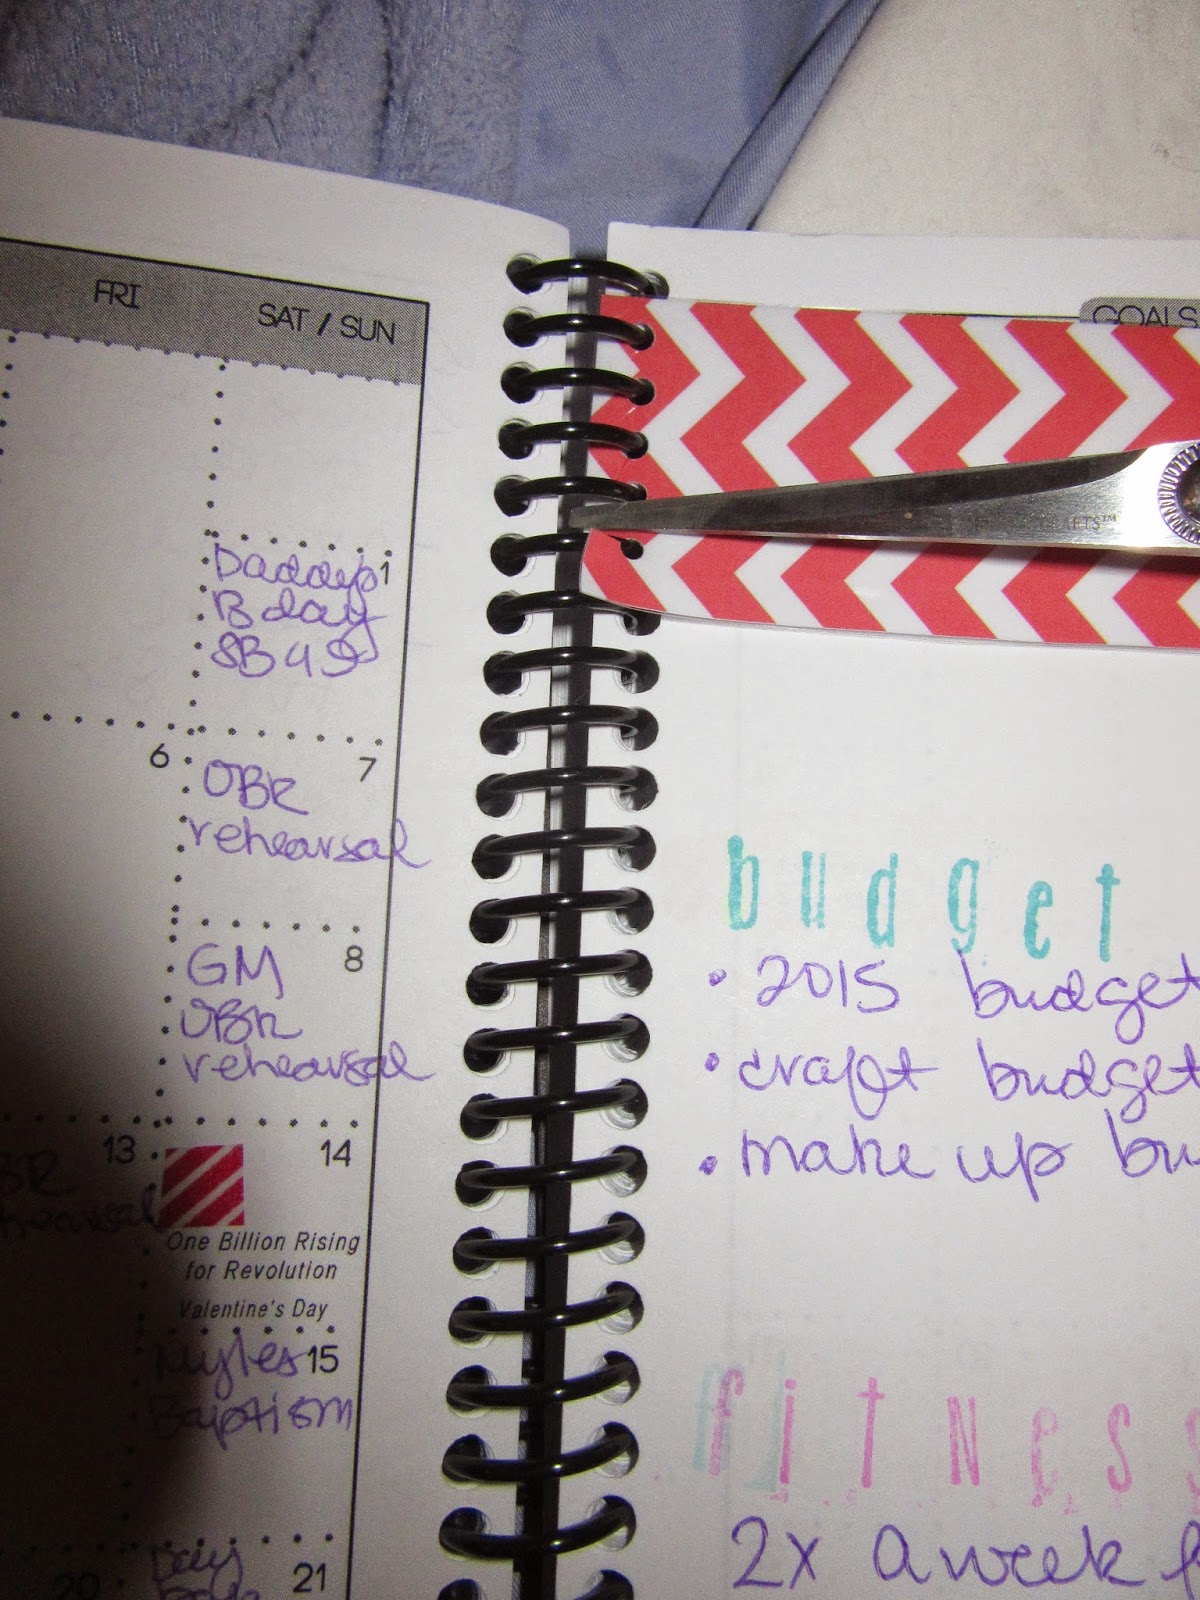 FRI
SAT / SUN
1
Bday
6
7
OBR
rehearsal
8
GM
OBR
rehearsal
13
14
One Billion Rising
for Revolution
Valentine's Day
15
Myles
Baptism
20
21
GOALS
budget
• 2015 budget
• craft budget
• make up
fitness
2x a week